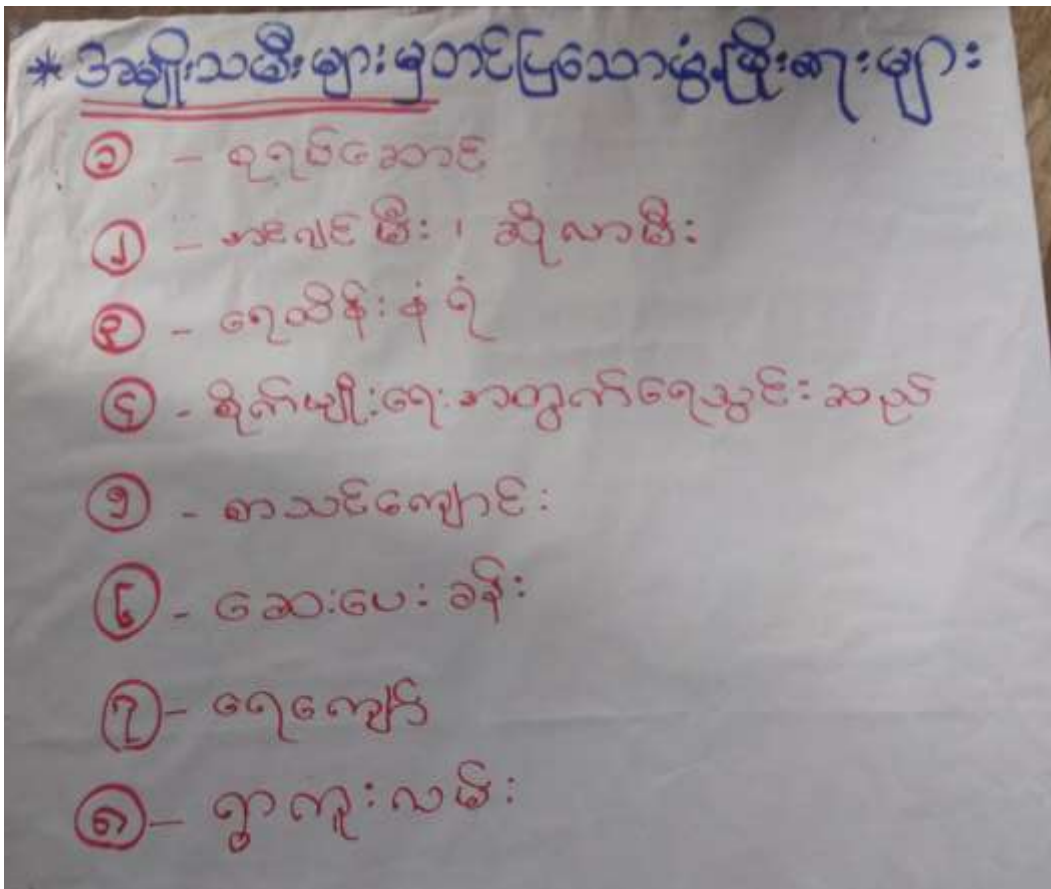 * အမျိုးသမီးများမှတင်ပြသောဖွံ့ဖြိုးရေးများ
၁ - စုရပ်ဆောင်
၂ - အင်ဂျင်မီး ၊ ဆိုလာမီး
၃ - ရေထိန်းနံရံ
၄ - စိုက်ပျိုးရေးအတွက်ရေသွင်းဆည်
၅ - စာသင်ကျောင်း
၆ - ဆေးပေးခန်း
၇ - ရေကျော်
၈ - ရွာကူးလမ်း